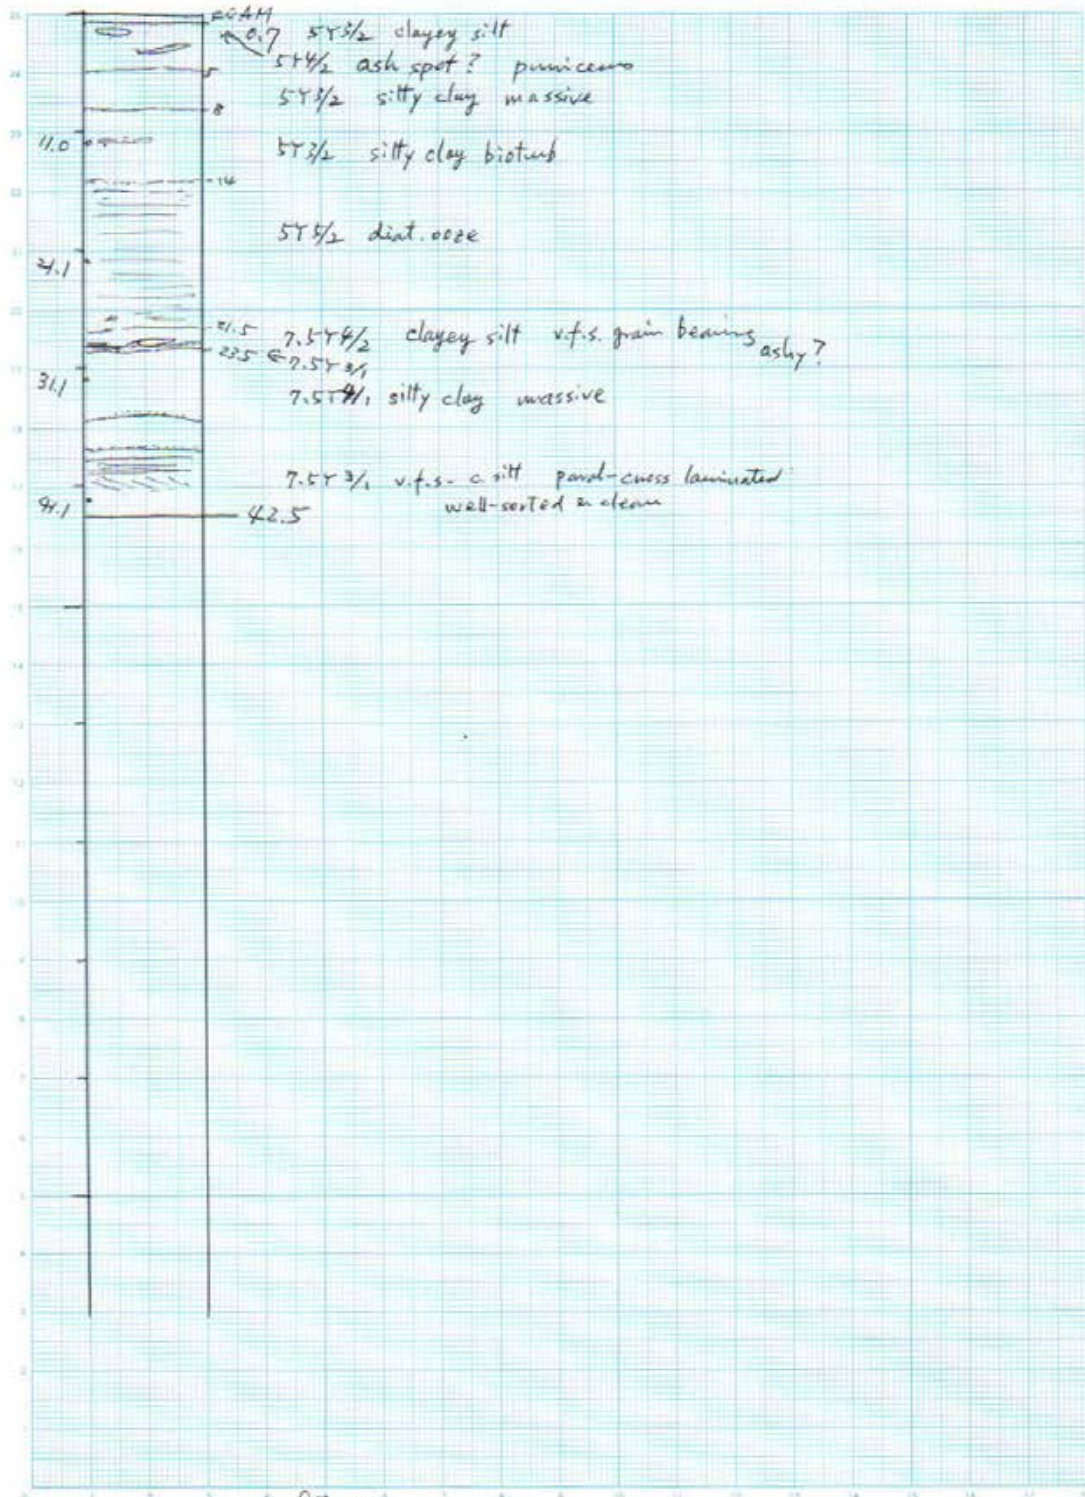 FOAM
0.7 5Y3/2 clayey silt
5Y4/2 ash spot? pumiceous
5
5Y3/2 silty clay massive
8
11.0
5Y3/2 silty clay bioturb
14
5Y5/2 diat. ooze
21.1
21.5 7.5Y4/2 clayey silt v.f.s. grain bearing ashy?
23.5 7.5Y3/1
31.1
7.5Y4/1 silty clay massive
7.5Y3/1 v.f.s - c. silt paral-cross laminated
41.1 well-sorted & clean
42.5